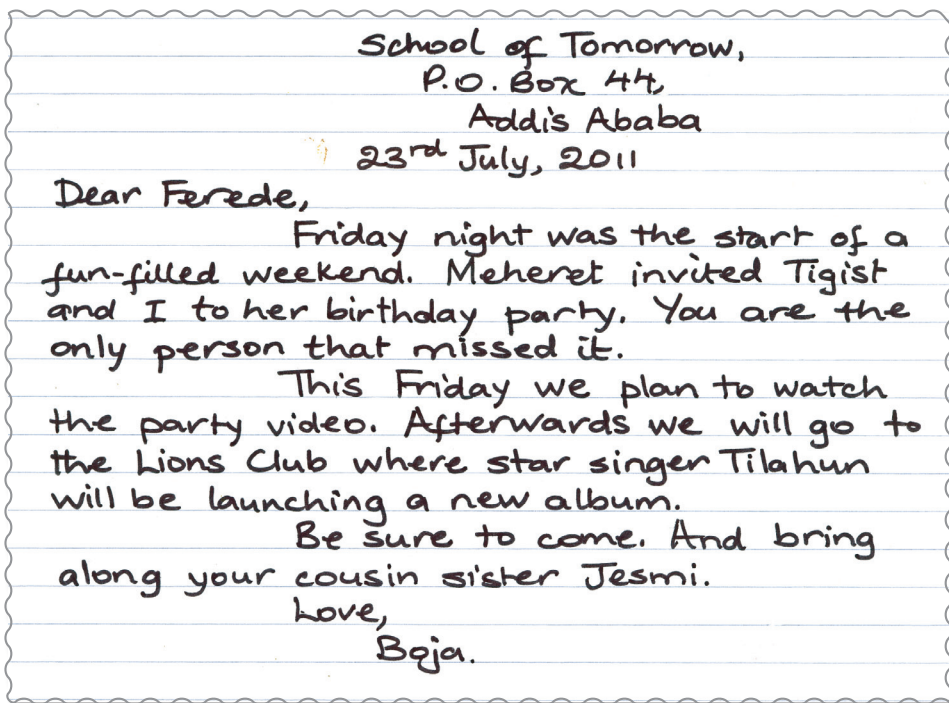 School of Tomorrow,
P.O. Box 44,
Addis Ababa
23rd July, 2011
Dear Ferede,
Friday night was the start of a
fun-filled weekend. Meheret invited Tigist
and I to her birthday party. You are the
only person that missed it.
This Friday we plan to watch
the party video. Afterwards we will go to
the Lions Club where star singer Tilahun
will be launching a new album.
Be sure to come. And bring
along your cousin sister Jesmi.
Love,
Boja.